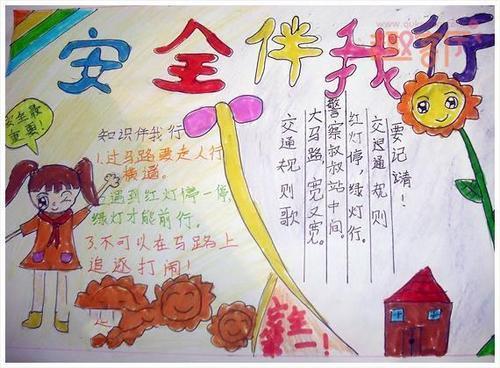 安全伴我行
安全最
重要!
知识伴我行
1.过马路要走人行
横道。
2.遇到红灯停一停,
绿灯才能前行。
3.不可以在马路上
追逐打闹!
交通规则歌
大马路,宽又宽。
警察叔叔站中间。
红灯停,绿灯行。
交通规则
要记请!